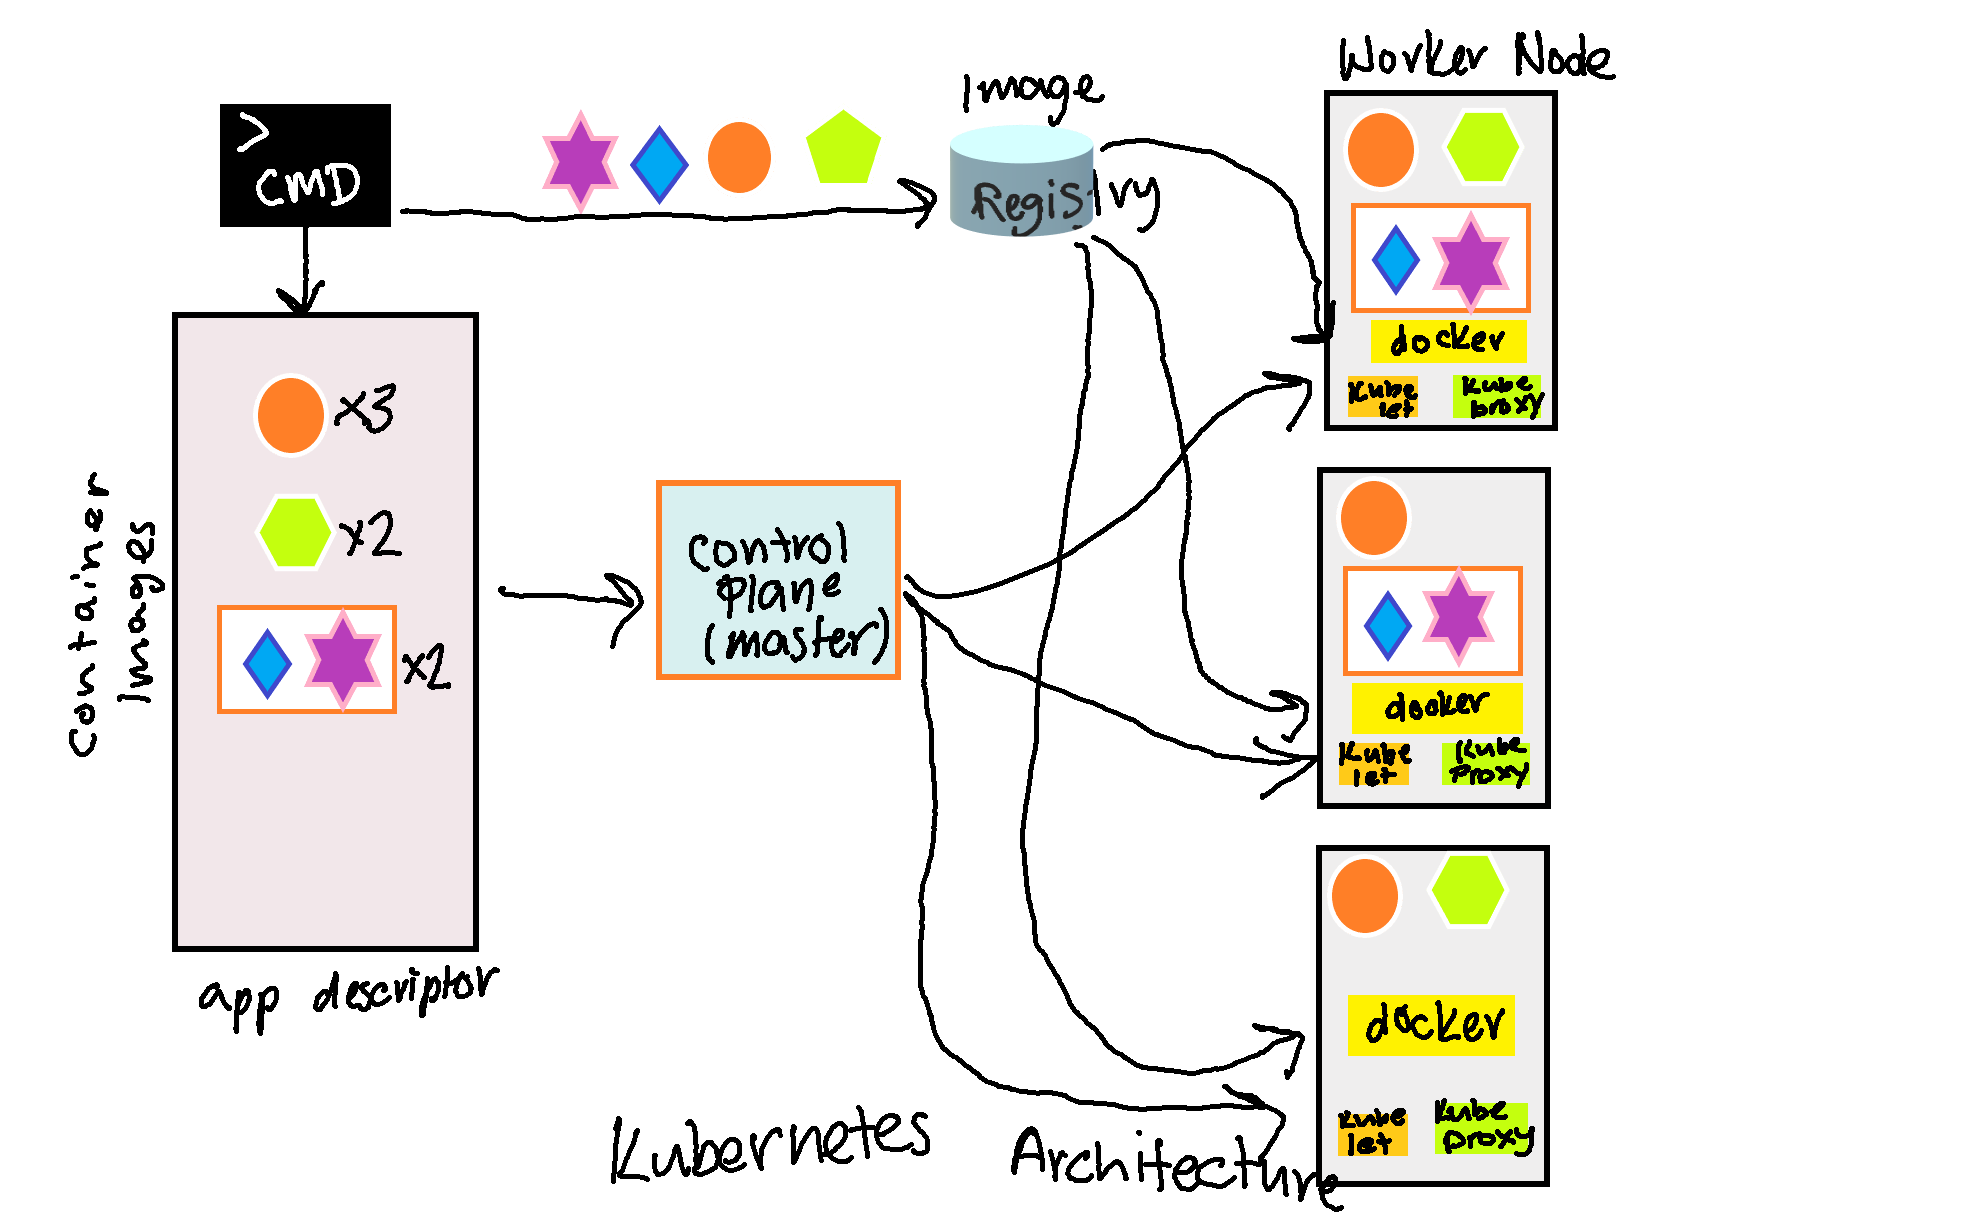 Worker Node
Image
Registry
>
CMD
docker
Kube
let
Kube
proxy
x3
x2
x2
Container
Images
app descriptor
control
plane
(master)
docker
Kube
let
Kube
Proxy
docker
Kube
let
Kube
proxy
Kubernetes Architecture